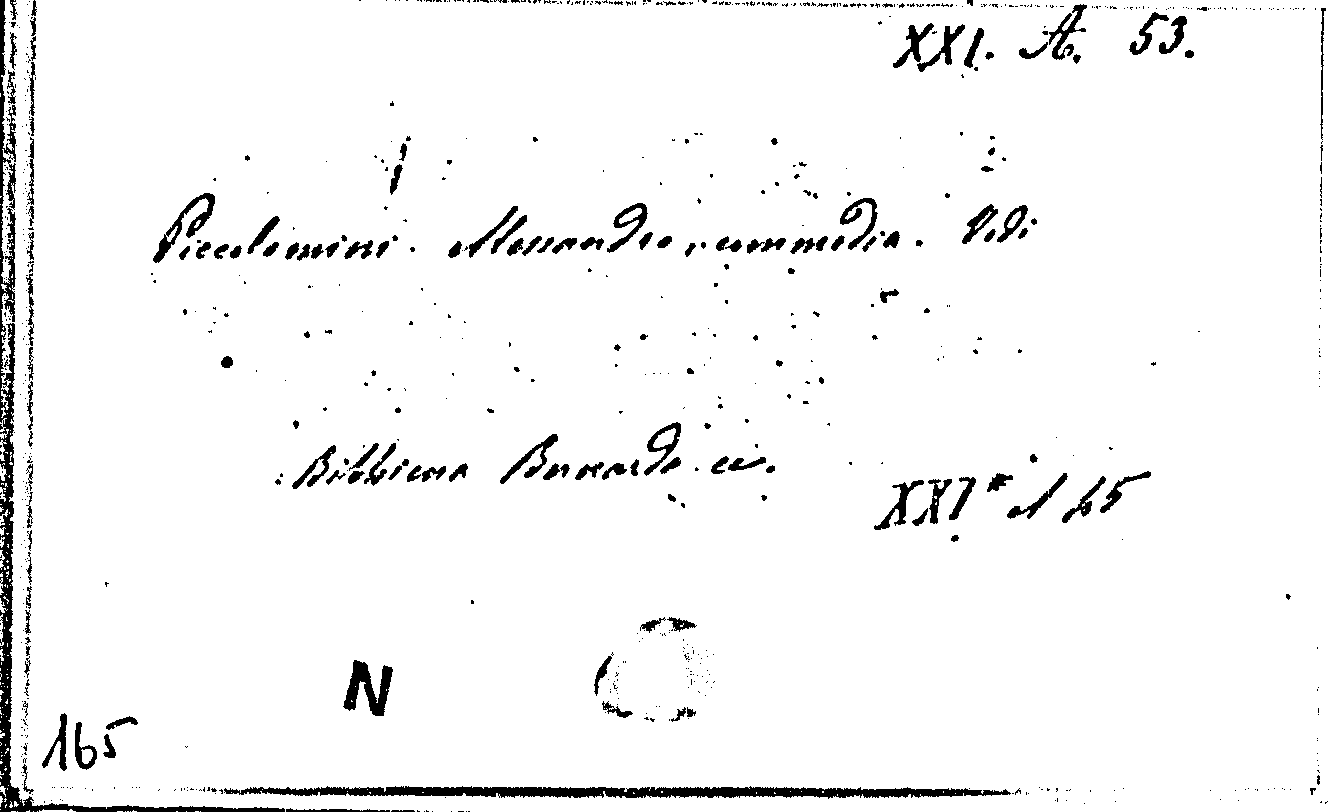 XXI. A. 53.
Piccolomini. Alessandro, commedia. Vedi
Bibbiena Bernardo ec.
XXI* A 45
N
165